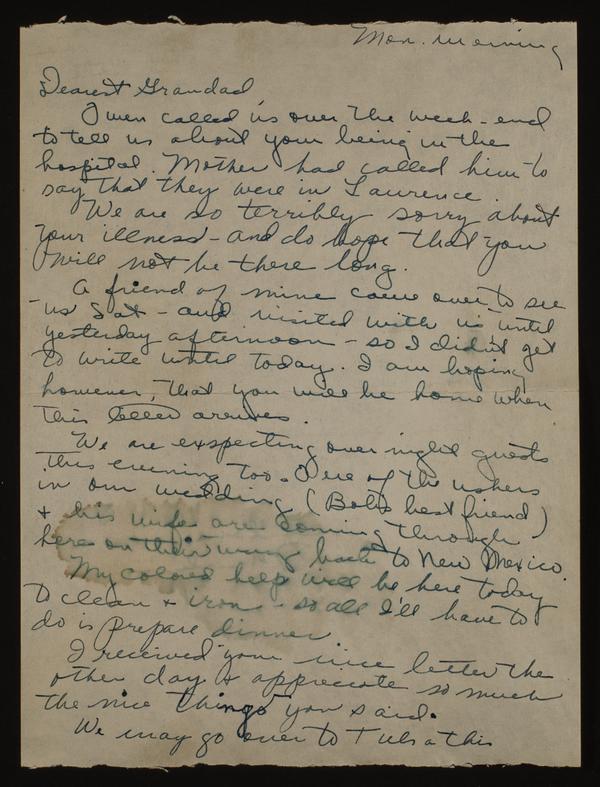 Mon. morning
Dearest Grandad
Owen called us over the week-end
to tell us about your being in the
hospital. Mother had called him to
say that they were in Laurence.
We are so terribly sorry about
your illness - and do hope that you
will not be there long.
A friend of mine came over to see
us Sat - and visited with us until
yesterday afternoon - so I didn't get
to write until today. I am hoping
however, that you will be home when
this letter arrives.
We are expecting over night guests
this evening too. One of the ushers
in our wedding (Bob's best friend)
& his wife are coming through
here on their way back to New Mexico.
My colored help will be here today
to clean & iron - so all I'll have to
do is prepare dinner
I received your nice letter the
other day & appreciate so much
the nice things you said.
We may go over to Tulsa this